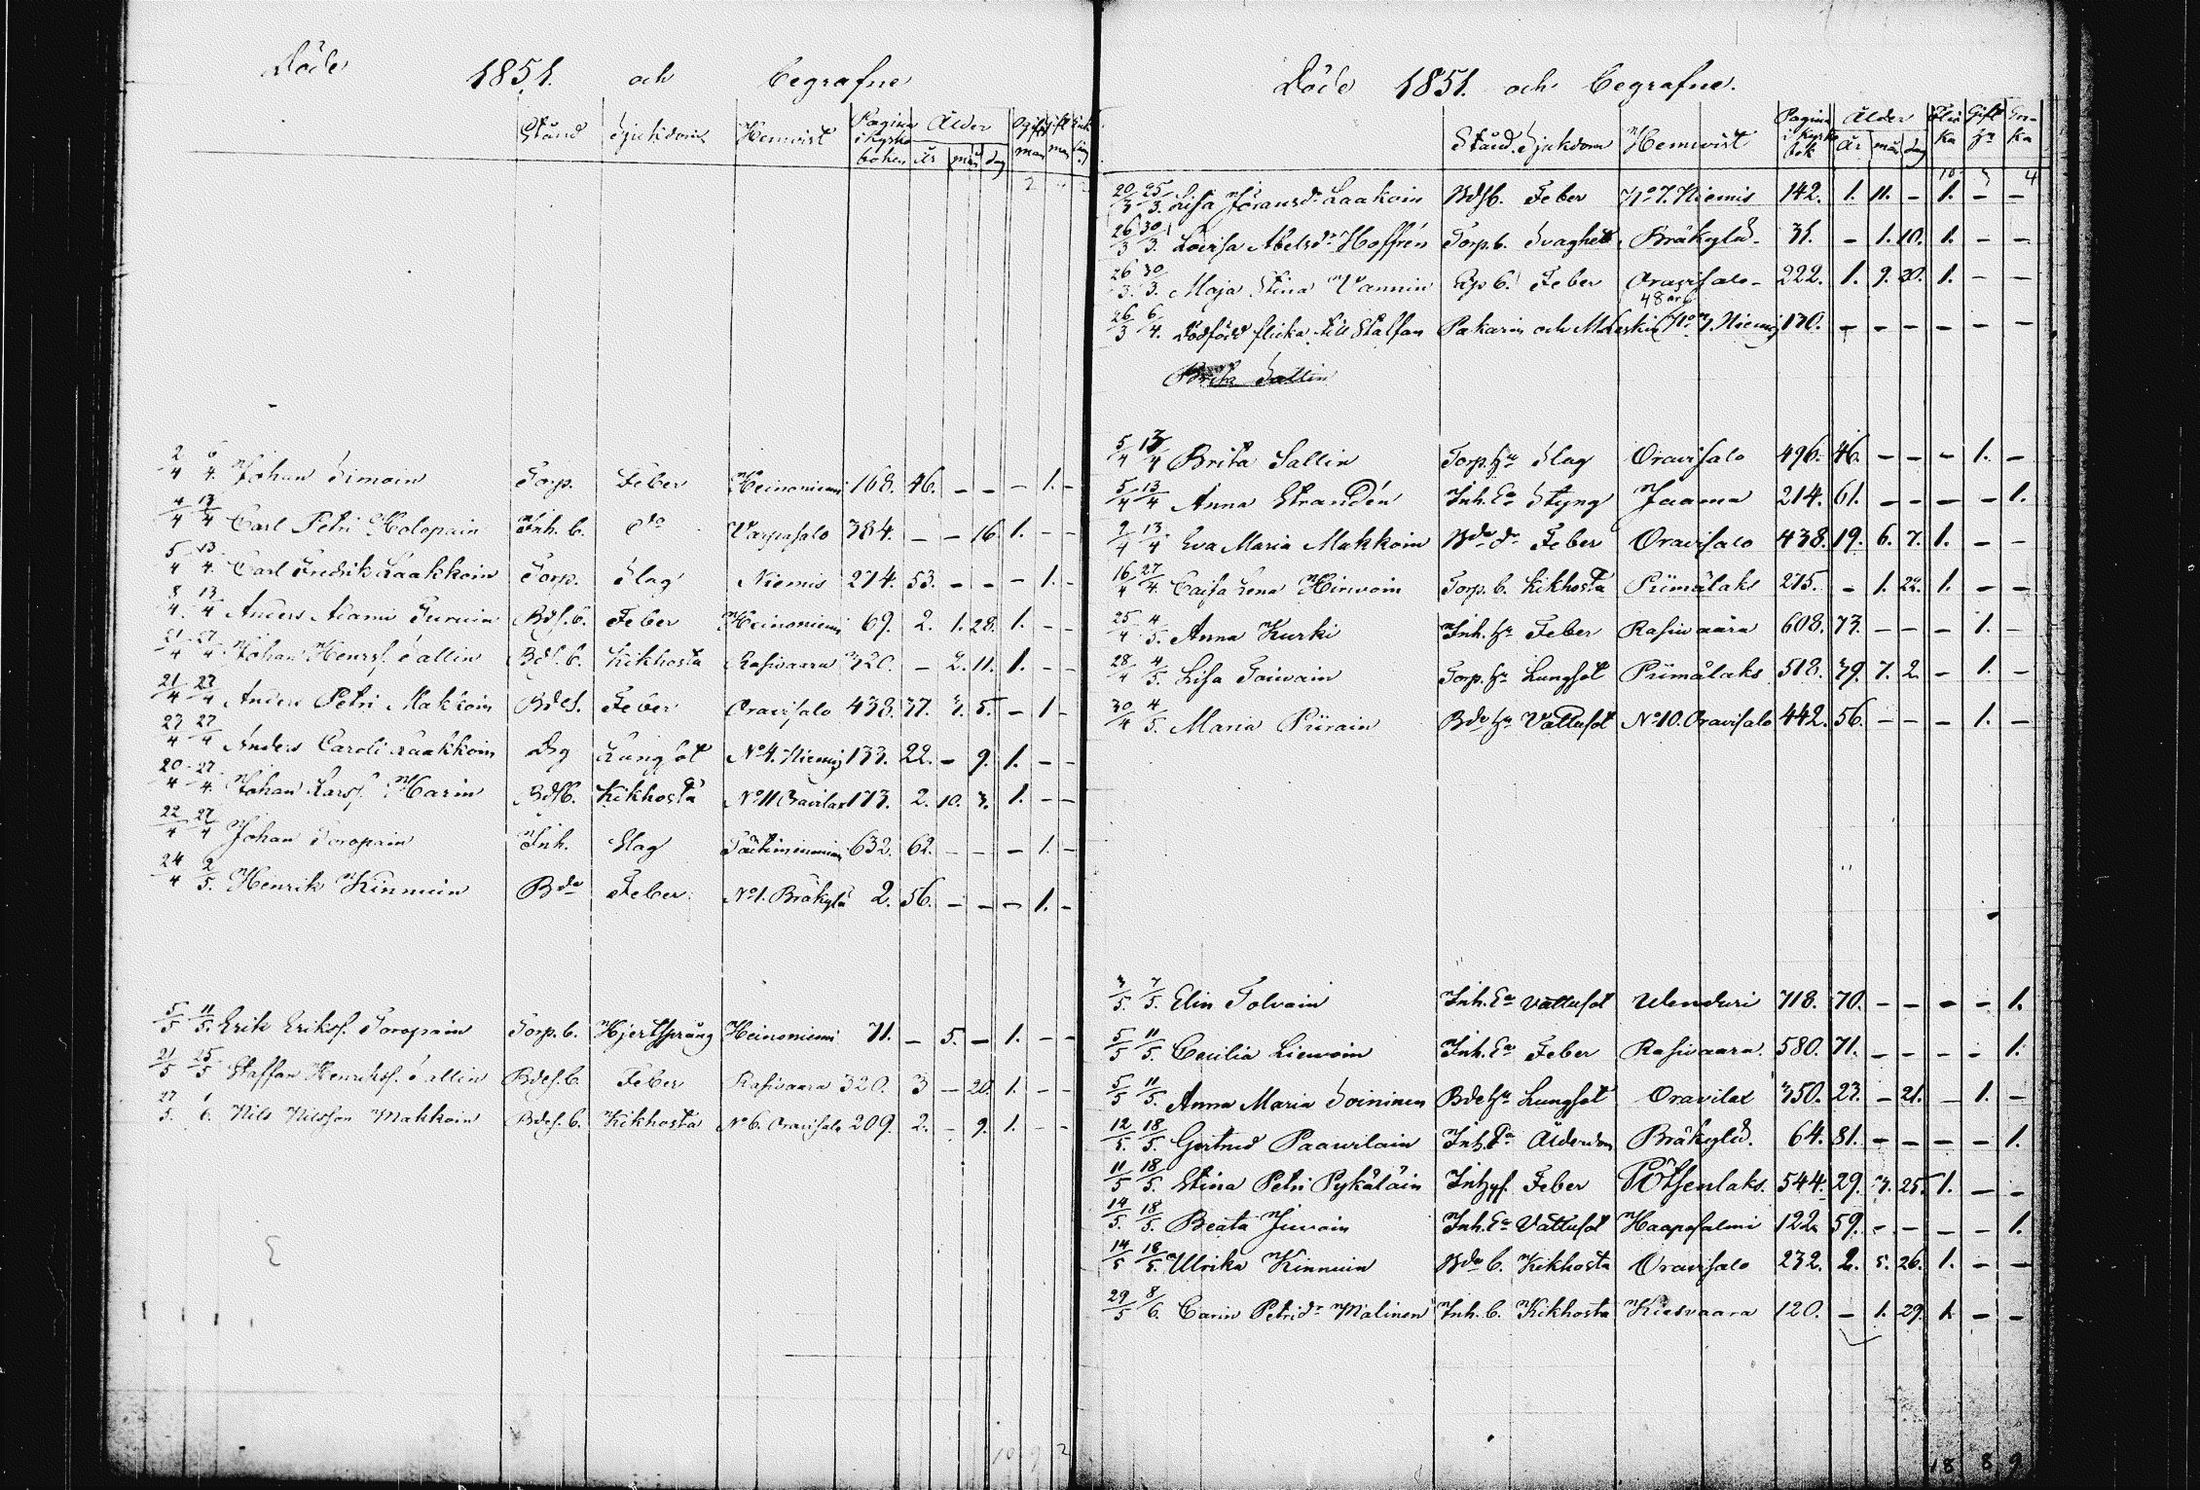 Döde 1851. och begrafne
Stånd Sjukdom Hemvist Pagina i Kyrko boken Ålder År mån dag Ogift man gift man
2
2/4 6/4. Johan Simoin Torp. Feber Heinoniemi 168. 46. – – – 1. –
4/4 13/4 Carl Petri Holopain Inh. b. do Varpasalo 384. – – 16. 1. – –
5/4 13/4. Carl Fredrik Laakkoin Torp. Slag Niemis 274. 53. – – – 1. –
8/4. 13/4 Anders Adami Turuin Bdes. b. Feber Heinoniemi 69. 2. 1. 28. 1. – –
21/4 27/4. Johan Henrss. Sallin Bdes. b. Kikhosta Rasivaara 320. – 2. 11. 1. – –
21/4 27/4 Anders Petri Makkoin Bdes. Feber Oravisalo 438. 37. 3. 5. – 1 –
23/4 27/4 Anders Caroli Laakkoin Drg Lungsot No 4. Niemis 133. 22. – 9. 1. – –
20/4 27/4. Johan Larss. Harin Bdsb. Kikhosta No 11 Oravilax 173. 2. 10. 3. 1. – –
22/4 27/4 Johan Toropain Inh. Slag 632. 62. – – – 1. –
24/4 2/5. Henrik Kinnuin Bde Feber No 1. Bräkylä 2. 56. – – – 1. –
5/5 11/5. Erik Erikss. Toropain Torp. b. Hjertsprång Heinoniemi 71. – 5. – 1. – –
21/5 25/5 Staffan Henrikss. Sallin Bdes. b. Feber Rasivaara 320. 3 – 20. 1. – –
27/5. 1/6. Nils Nilsson Makkoin Bdes. b. Kikhosta No 6. Oravisalo 209. 2. – 9. 1. – –
10 9 2
Döde 1851. och begrafne.
Stånd. Sjukdom Hemvist Pagina i Kyrko bok Ålder År. mån dag Flicka Gift Hu Enka
10 3 4
20/3 25/3. Lisa Göransdr Laakoin Bdsb. Feber No 7. Niemis 142. 1. 11. – 1. – –
26/3 30/3. Lovisa Abelsdr Hoffrén Torp. b. Svaghet Bräkylä. 31. – 1. 10. 1. – –
26/3. 30/3. Maja Stina Vannin b. Feber Oravisalo – 222. 1. 9. 20. 1. – –
48 år
26/3 6/4. Dödfödd flicka till Staffan Pakarin och M. Laskin No 7. Niemis 130. – – – – – –
Brita Sallin
5/4 13/4 Brita Sallin Torp. hu Slag Oravisalo 496. 46. – – – 1. –
5/4 13/4 Anna Strandén Inh. Ea Styng Jaama 214. 61. – – – – 1.
9/4 13/4 Eva Maria Makkoin Bde dr Feber Oravisalo 438. 19. 6. 7. 1. – –
16/4 27/4. Caisa Lena Hirvoin Torp. b. Kikhosta Piimälaks 275. – 1. 22. 1. – –
25/4 4/5. Anna Kurki Inh. hu Feber Rasivaara 608. 73. – – – 1. –
28/4 4/5. Lisa Toivain Torp. hu Lungsot Piimälaks 518. 39. 7. 2. – 1. –
30/4 4/5. Maria Piirain Bde hu Vattusot No 10. Oravisalo 442. 56. – – – 1. –
3/5. 7/5. Elin Tolvain Inh. Ea Vattusot 718. 70. – – – – 1.
5/5 11/5. Cecilia Liewoin Inh. Ea Feber Rasivaara. 580. 71. – – – – 1.
5/5 11/5. Anna Maria Soininen Bde hu Lungsot Oravilax 350. 23. – 21. – 1. –
12/5. 18/5. Gertrud Paavilain Inh. Ea Ålderdom Bräkylä. 64. 81. – – – – 1.
11/5 18/5. Stina Petri Pykäläin Feber Pötsenlaks. 544. 29. 3. 25. 1. – –
14/5. 18/5. Beata Juvain Inh. Ea Vattusot Haapasalmi 122. 59. – – – – 1.
14/5 18/5. Ulrika Kinnuin Bde b. Kikhosta Oravisalo 232. 2. 5. 26. 1. – –
29/5 8/6. Carin Petridr Malinen Inh. b. Kikhosta Kiesvaara 120. – 1. 29. 1. – –
18 8 9